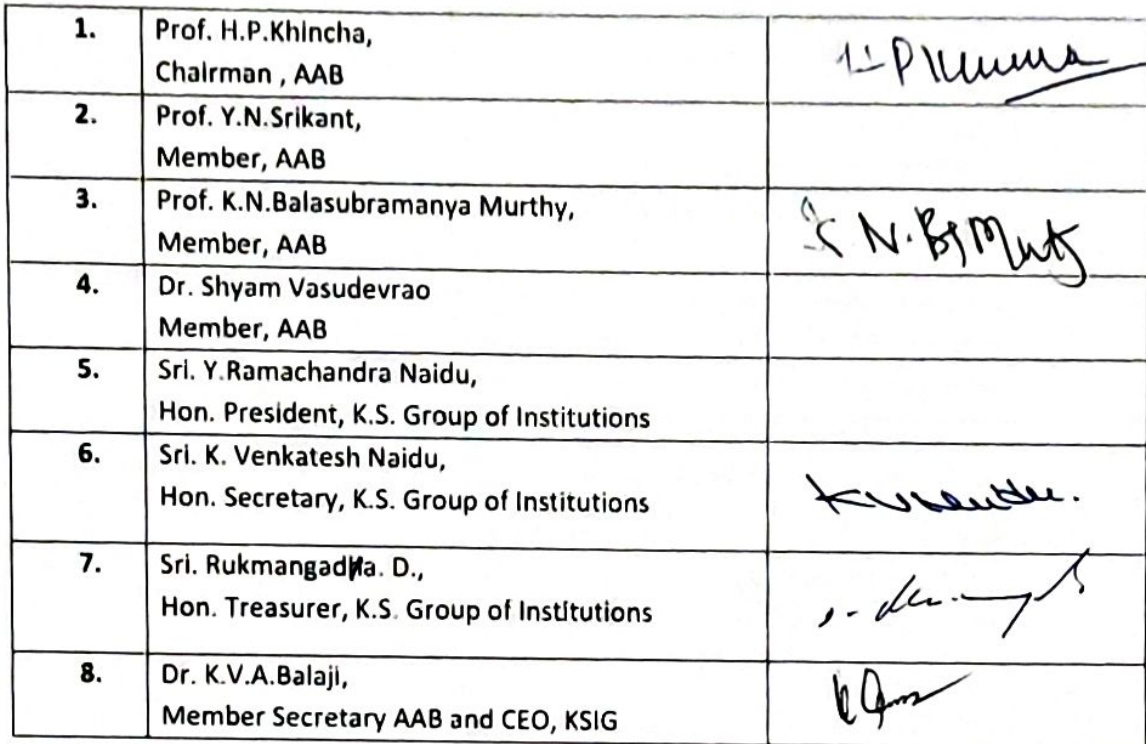 1. Prof. H.P.Khincha,
Chairman , AAB
2. Prof. Y.N.Srikant,
Member, AAB
3. Prof. K.N.Balasubramanya Murthy,
Member, AAB
4. Dr. Shyam Vasudevrao
Member, AAB
5. Sri. Y.Ramachandra Naidu,
Hon. President, K.S. Group of Institutions
6. Sri. K. Venkatesh Naidu,
Hon. Secretary, K.S. Group of Institutions
7. Sri. Rukmangadha. D.,
Hon. Treasurer, K.S. Group of Institutions
8. Dr. K.V.A.Balaji,
Member Secretary AAB and CEO, KSIG